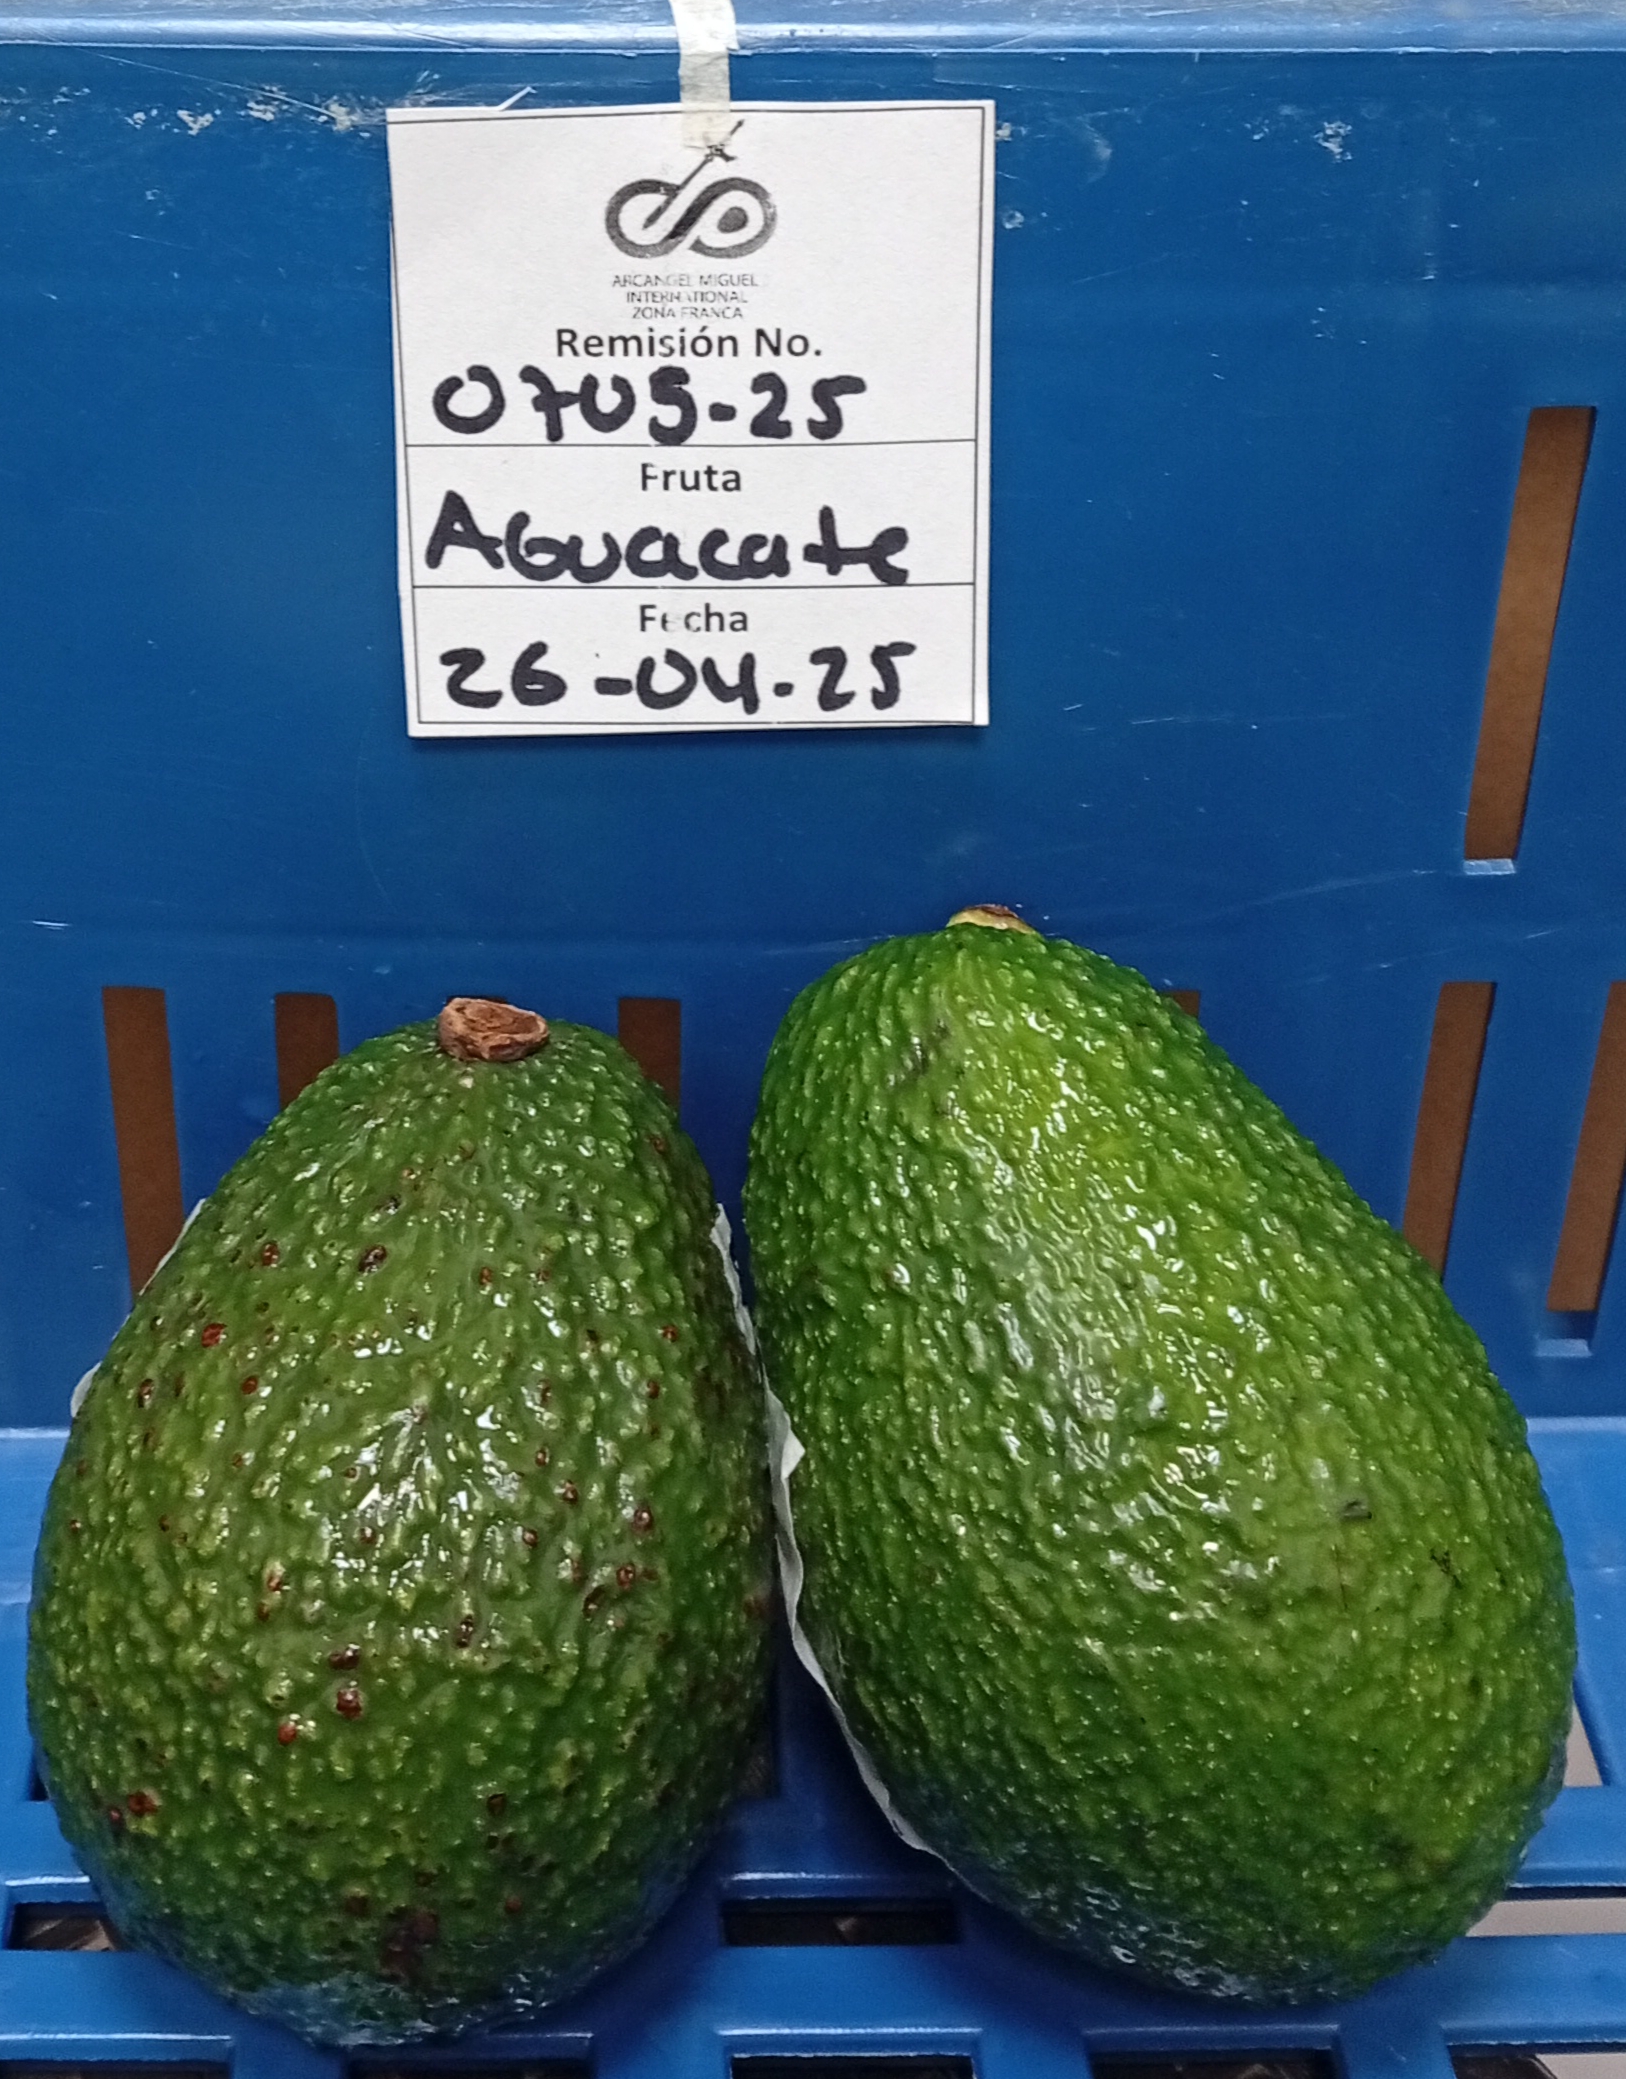 ARCANGEL MIGUEL
INTERNATIONAL
ZONA FRANCA
Remisión No.
0705-25
Fruta
AGuacate
Fecha
26-04-25